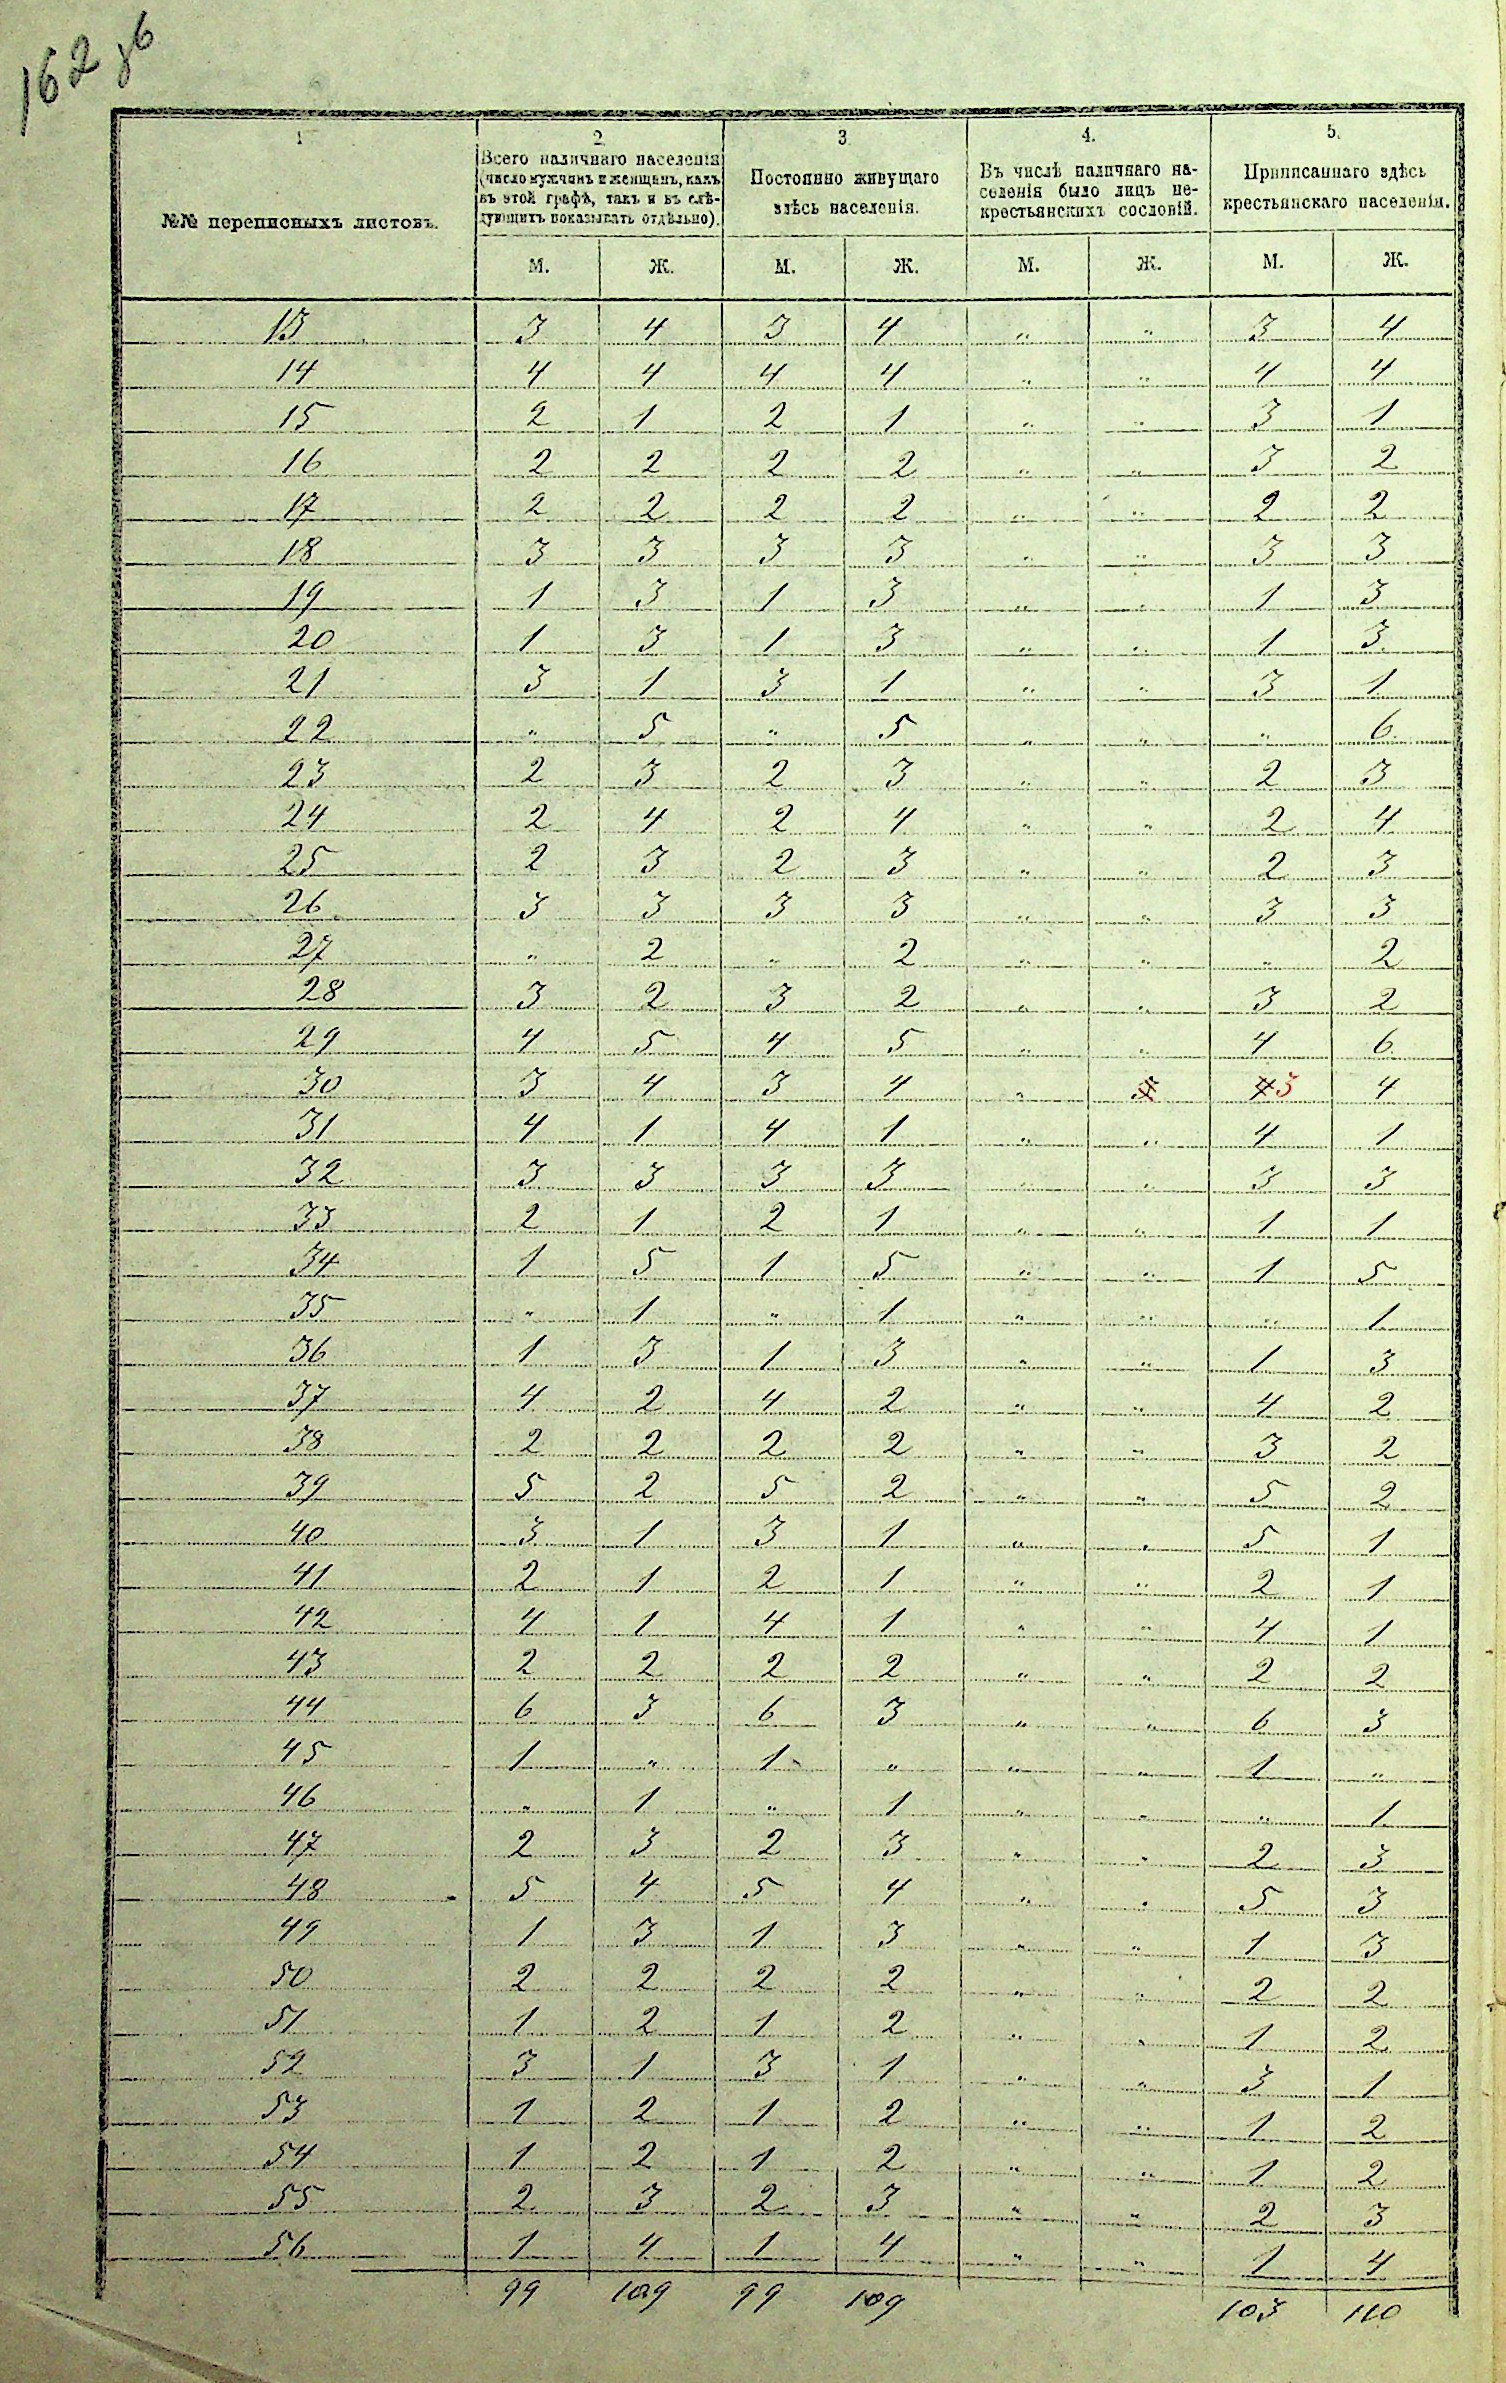 162 об
1 2. 3 4. 5.
№№ переписныхъ листовъ.
Всего наличнаго населенія
(число мужчинъ и женщинъ, какъ
въ этой графѣ, такъ и въ слѣ-
дующихъ показывать отдѣльно).
Постоянно живущаго
здѣсь населенія.
Въ числѣ наличнаго на-
селенія было лицъ не-
крестьянскихъ сословій.
Приписаннаго здѣсь
крестьянскаго населенія.
М. Ж. М. Ж. М. Ж. М. Ж.
13 3 4 3 4 " " 3 4
14 4 4 4 4 " " 4 4
15 2 1 2 1 " " 3 1
16 2 2 2 2 " " 3 2
17 2 2 2 2 " " 2 2
18 3 3 3 3 " " 3 3
19 1 3 1 3 " " 1 3
20 1 3 1 3 " " 1 3
21 3 1 3 1 " " 3 1
22 " 5 " 5 " " " 6
23 2 3 2 3 " " 2 3
24 2 4 2 4 " " 2 4
25 2 3 2 3 " " 2 3
26 3 3 3 3 " " 3 3
27 " 2 " 2 " " " 2
28 3 2 3 2 " " 3 2
29 4 5 4 5 " " 4 6
30 3 4 3 4 " 4 3 4
31 4 1 4 1 " " 4 1
32 3 3 3 3 " " 3 3
33 2 1 2 1 " " 1 1
34 1 5 1 5 " " 1 5
35 " 1 " 1 " " " 1
36 1 3 1 3 " " 1 3
37 4 2 4 2 " " 4 2
38 2 2 2 2 " " 3 2
39 5 2 5 2 " " 5 2
40 3 1 3 1 " " 5 1
41 2 1 2 1 " " 2 1
42 4 1 4 1 " " 4 1
43 2 2 2 2 " " 2 2
44 6 3 6 3 " " 6 3
45 1 " 1 " " " 1 "
46 " 1 " 1 " " " 1
47 2 3 2 3 " " 2 3
48 5 4 5 4 " " 5 3
49 1 3 1 3 " " 1 3
50 2 2 2 2 " " 2 2
51 1 2 1 2 " " 1 2
52 3 1 3 1 " " 3 1
53 1 2 1 2 " " 1 2
54 1 2 1 2 " " 1 2
55 2 3 2 3 " " 2 3
56 1 4 1 4 " " 1 4
99 109 99 109 103 110